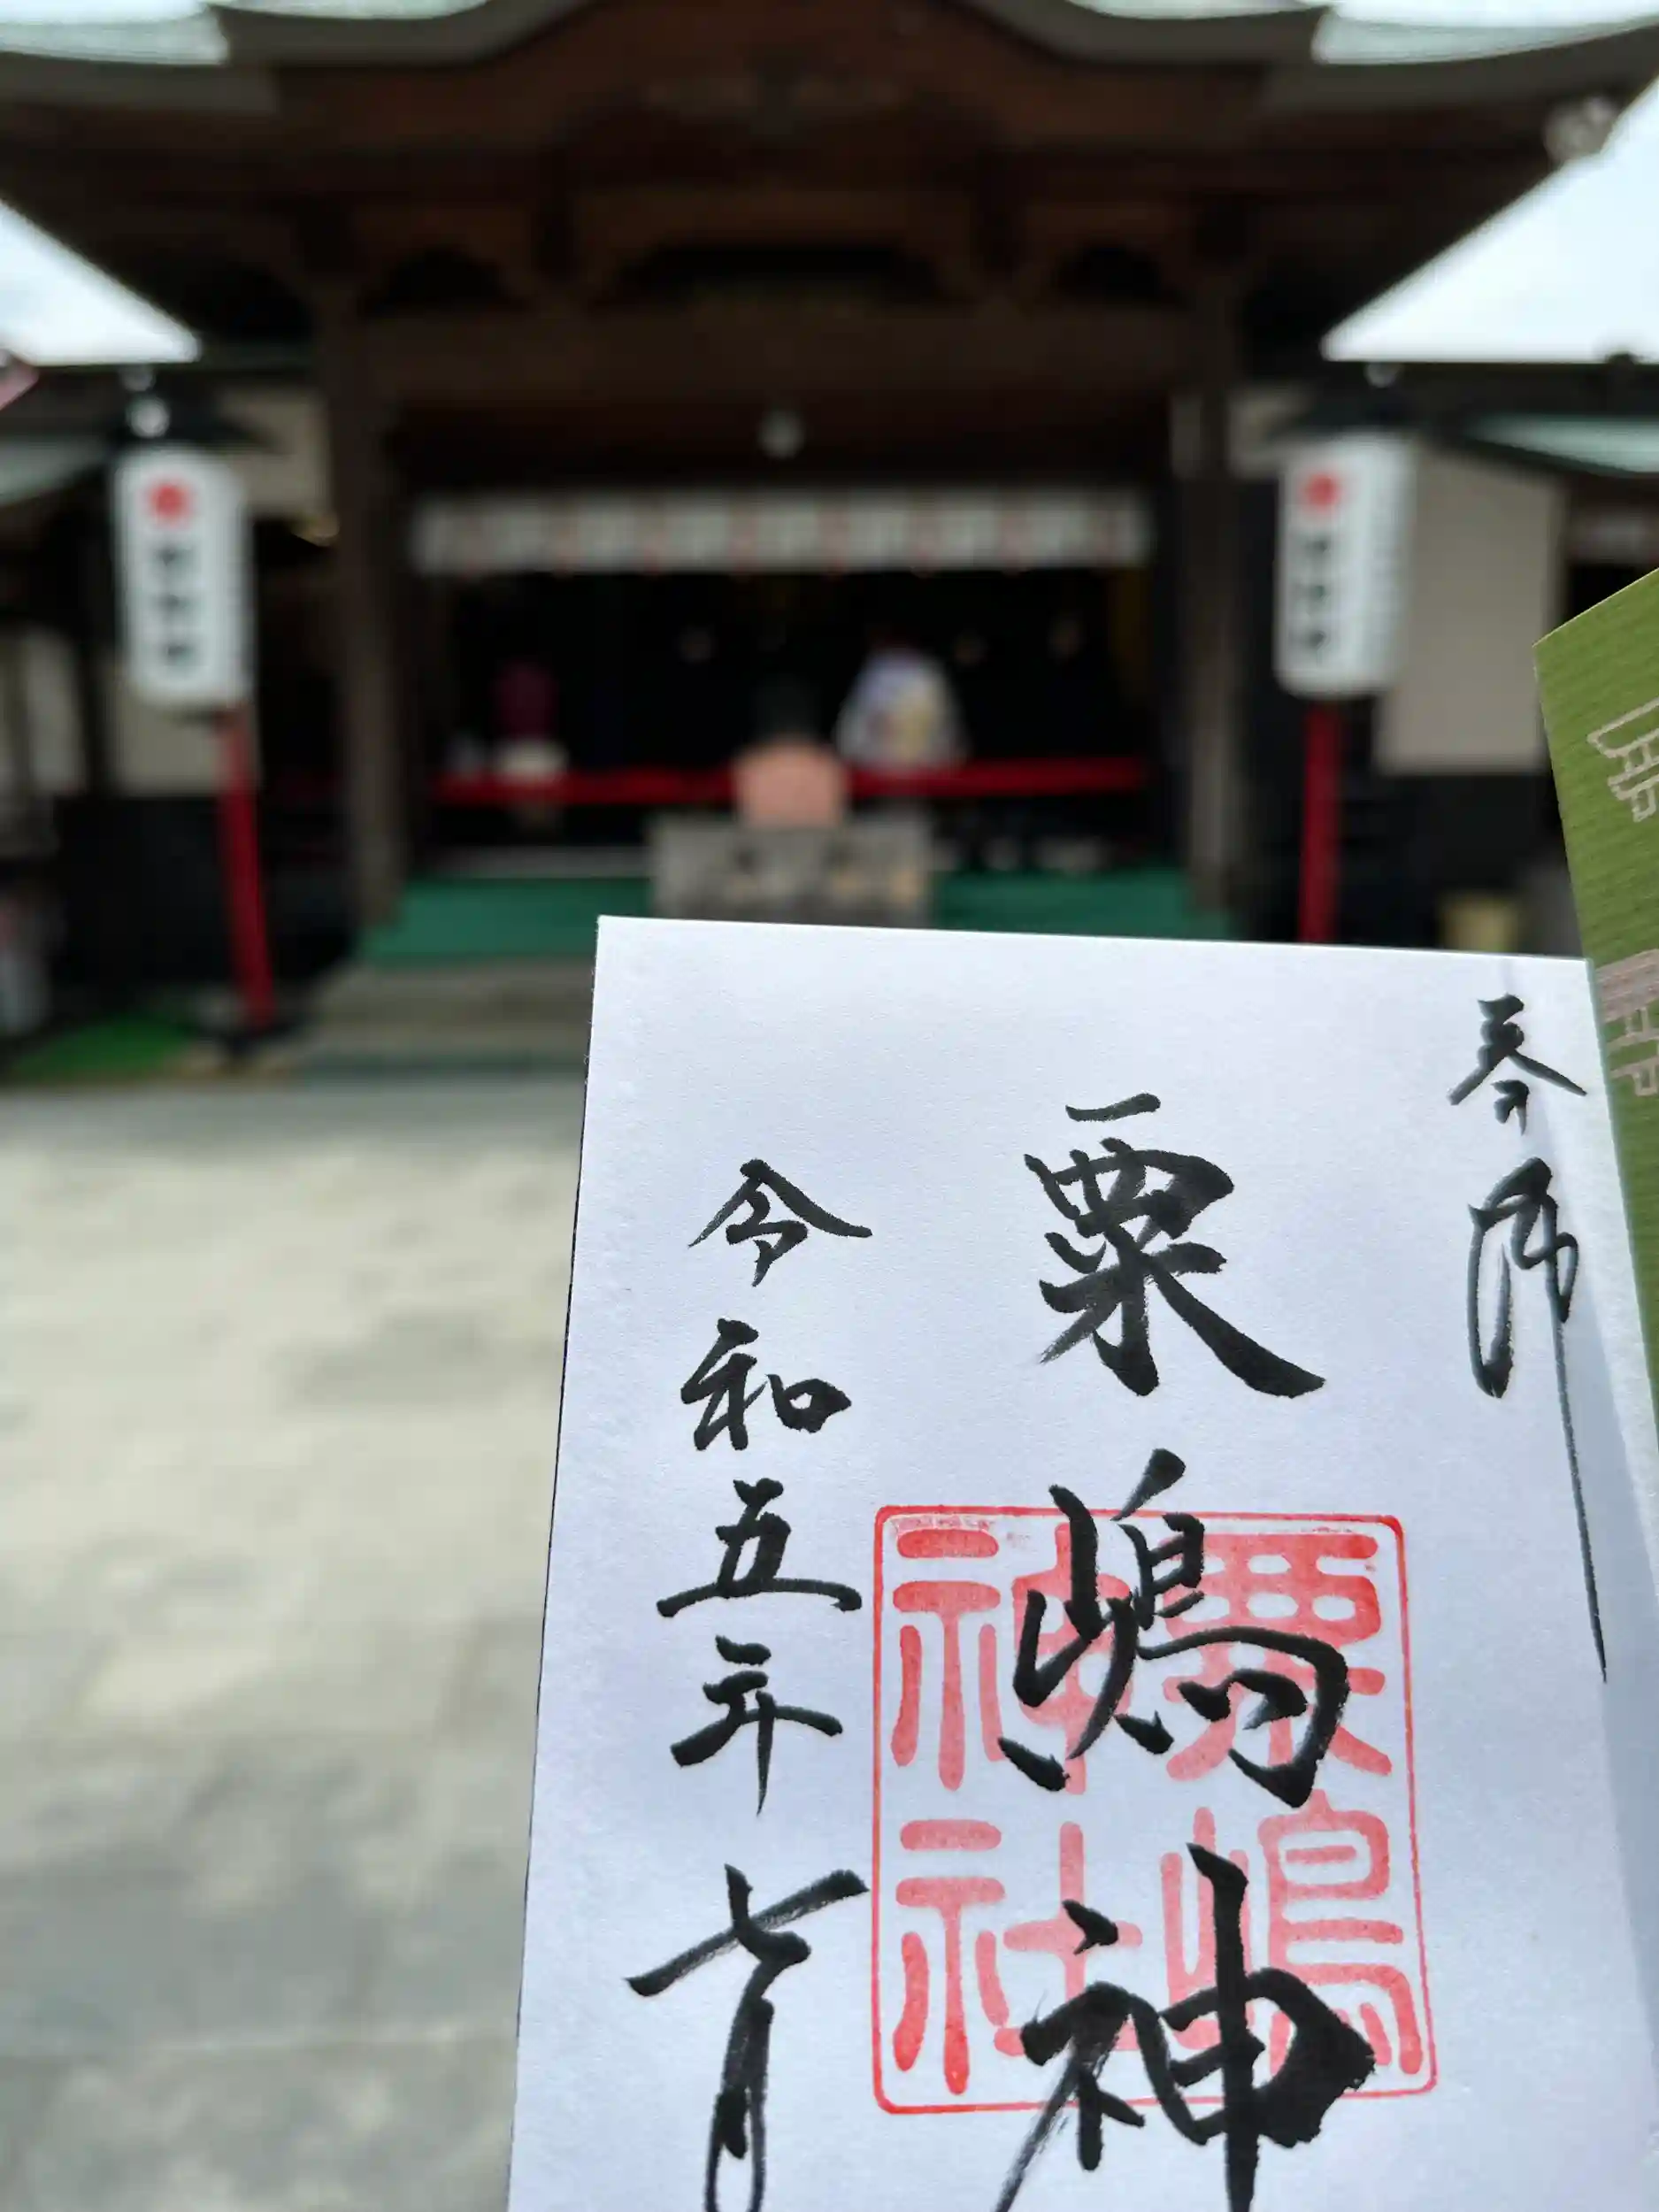 奉拝
粟嶋神
粟嶋神社
令和五年七月